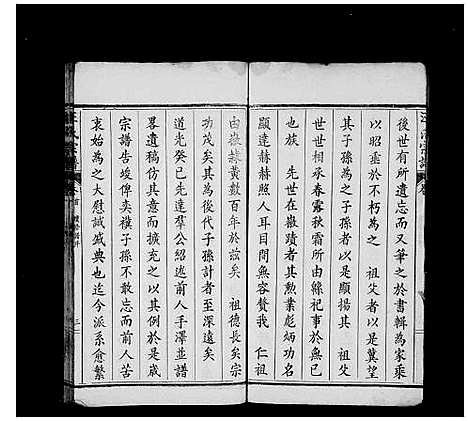 後世有所遺忘而又筆之於書輯為家乘
以昭垂於不朽為之 祖父者以是冀望
其子孫為之子孫者以是顯揚其 祖父
世世相承春露秋霜所由綿祀事於無已
也族 先世在嶽瀆者其勲業彪炳功
顯達赫赫照人耳目間無容贅我 仁祖
由嶽隸黄數百年於兹矣 祖德長矣宗
功茂矣其為後代子孫計者至深遠矣
道光癸巳先達羣公紹述前人手澤並譜
畧遺稿仿其意而擴充之以其例於是歲
宗譜告竣俾奕禩子孫不敢忘而前人
哀始為之大慰誠盛典也迄今派系愈繁
氏宗譜